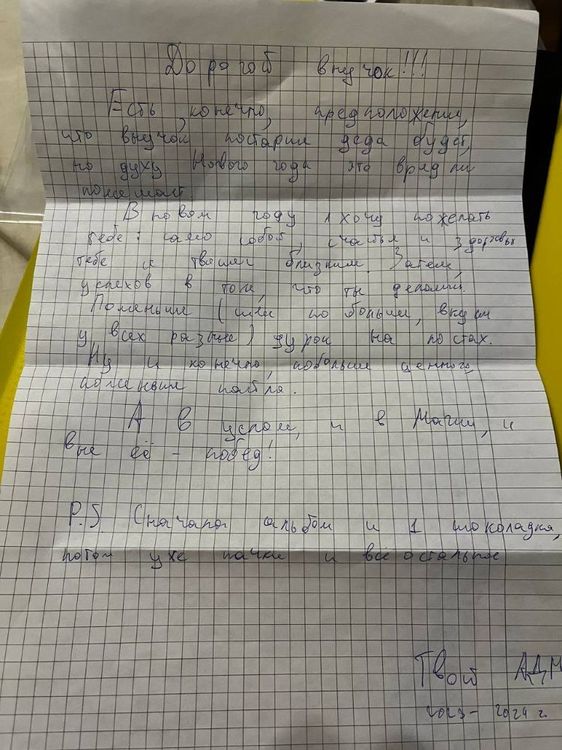 Дорогой внучок!!!
Есть, конечно, предположения,
что внучок постарше деда будет,
но духу Нового года это вряд ли
помешает
В новом году я хочу пожелать
тебе: само собой, счастья и здоровья
тебе и твоим близким. Затем,
успехов в том, что ты делаешь.
Поменьше (или по больше, вкусы
у всех разные) дурок на постах.
Ну и конечно, побольше ценного
пожененше
А в целом, и в Магии, и
вне её - побед!
P.S. Сначала альбом и 1 шоколадка,
потом уже пачки и все остальное
Твой АДМ
2023 - 2024 г.